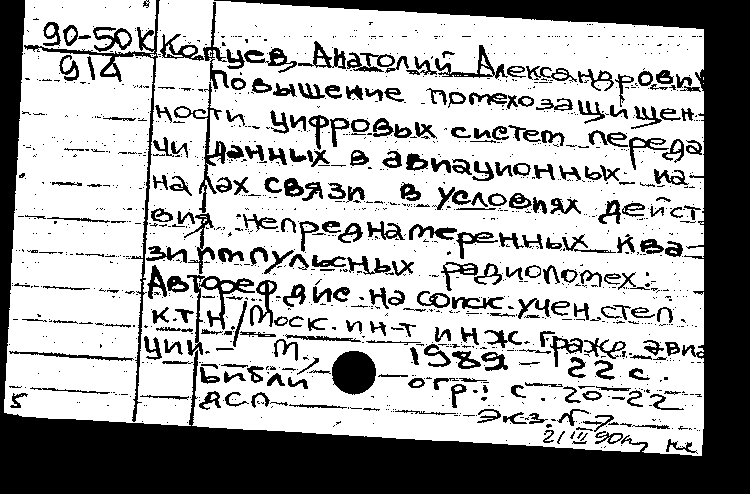 90-50К Копуев, Анатолий Александрович
914
Повышение помехозащищен-
ности цифровых систем переда
чи данных в авиационных ка-
налах связи в условиях дейст
вия непреднамеренных ква-
зиимпульсных радиопомех:
Автореф. дис. на соиск. учен. степ.
к.т.н. / Моск. ин-т инж. гражд. авиа
ции. – М., 1989 – 22 с.
Библиогр.: с. 20-22
ДСП Экз. N 7
5 21 III 90